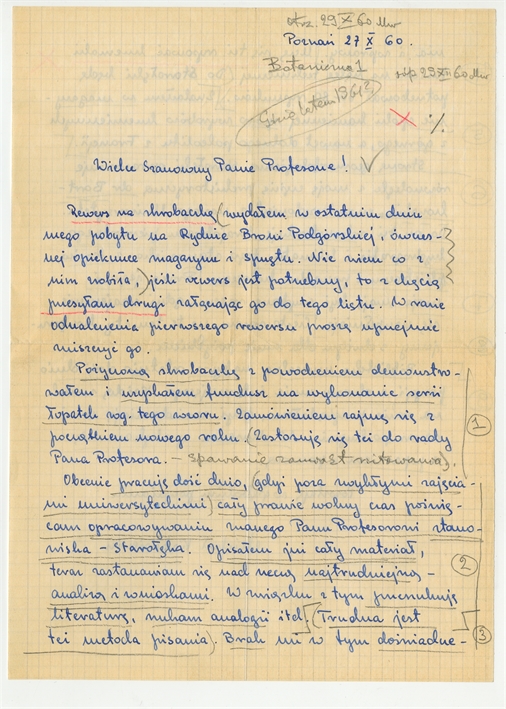 otrz. 29 X 60 Mw
Poznań 27 X 60.
Botaniczna 1
odp 29 XII 60 Mw
Gdzieś latem 1961?
Wielce Szanowny Panie Profesorze!
Rewers na skrobaczkę (wydałem w ostatnim dniu
mego pobytu na Rydnie Broni Podgórskiej, ówczes-
nej opiekunce magazynu i sprzętu. Nie wiem co z
nim zrobiła,) jeśli rewers jest potrzebny, to z chęcią
przesyłam drugi załączając go do tego listu. W razie
odnalezienia pierwszego rewersu proszę uprzejmie
zniszczyć go.
Pożyczoną skrobaczkę z powodzeniem demonstro-
wałem i uzyskałem fundusz na wykonanie serii
łopatek wg. tego wzoru. Zamówieniem zajmę się z
początkiem nowego roku. (Zastosuję się też do rady
Pana Profesora. – spawanie zamiast nitowania).
1
Obecnie pracuję dość dużo, (gdyż poza zwykłymi zajęcia-
mi uniwersyteckimi) cały prawie wolny czas poświę-
cam opracowywaniu znanego Panu Profesorowi stano-
wiska – Starołęka. Opisałem już cały materiał,
teraz zastanawiam się nad rzeczą najtrudniejszą –
analizą i wnioskami. W związku z tym przeszukuję
2
literaturę, szukam analogii itd. (Trudna jest
też metoda pisania). Brak mi w tym doświadcze-
3